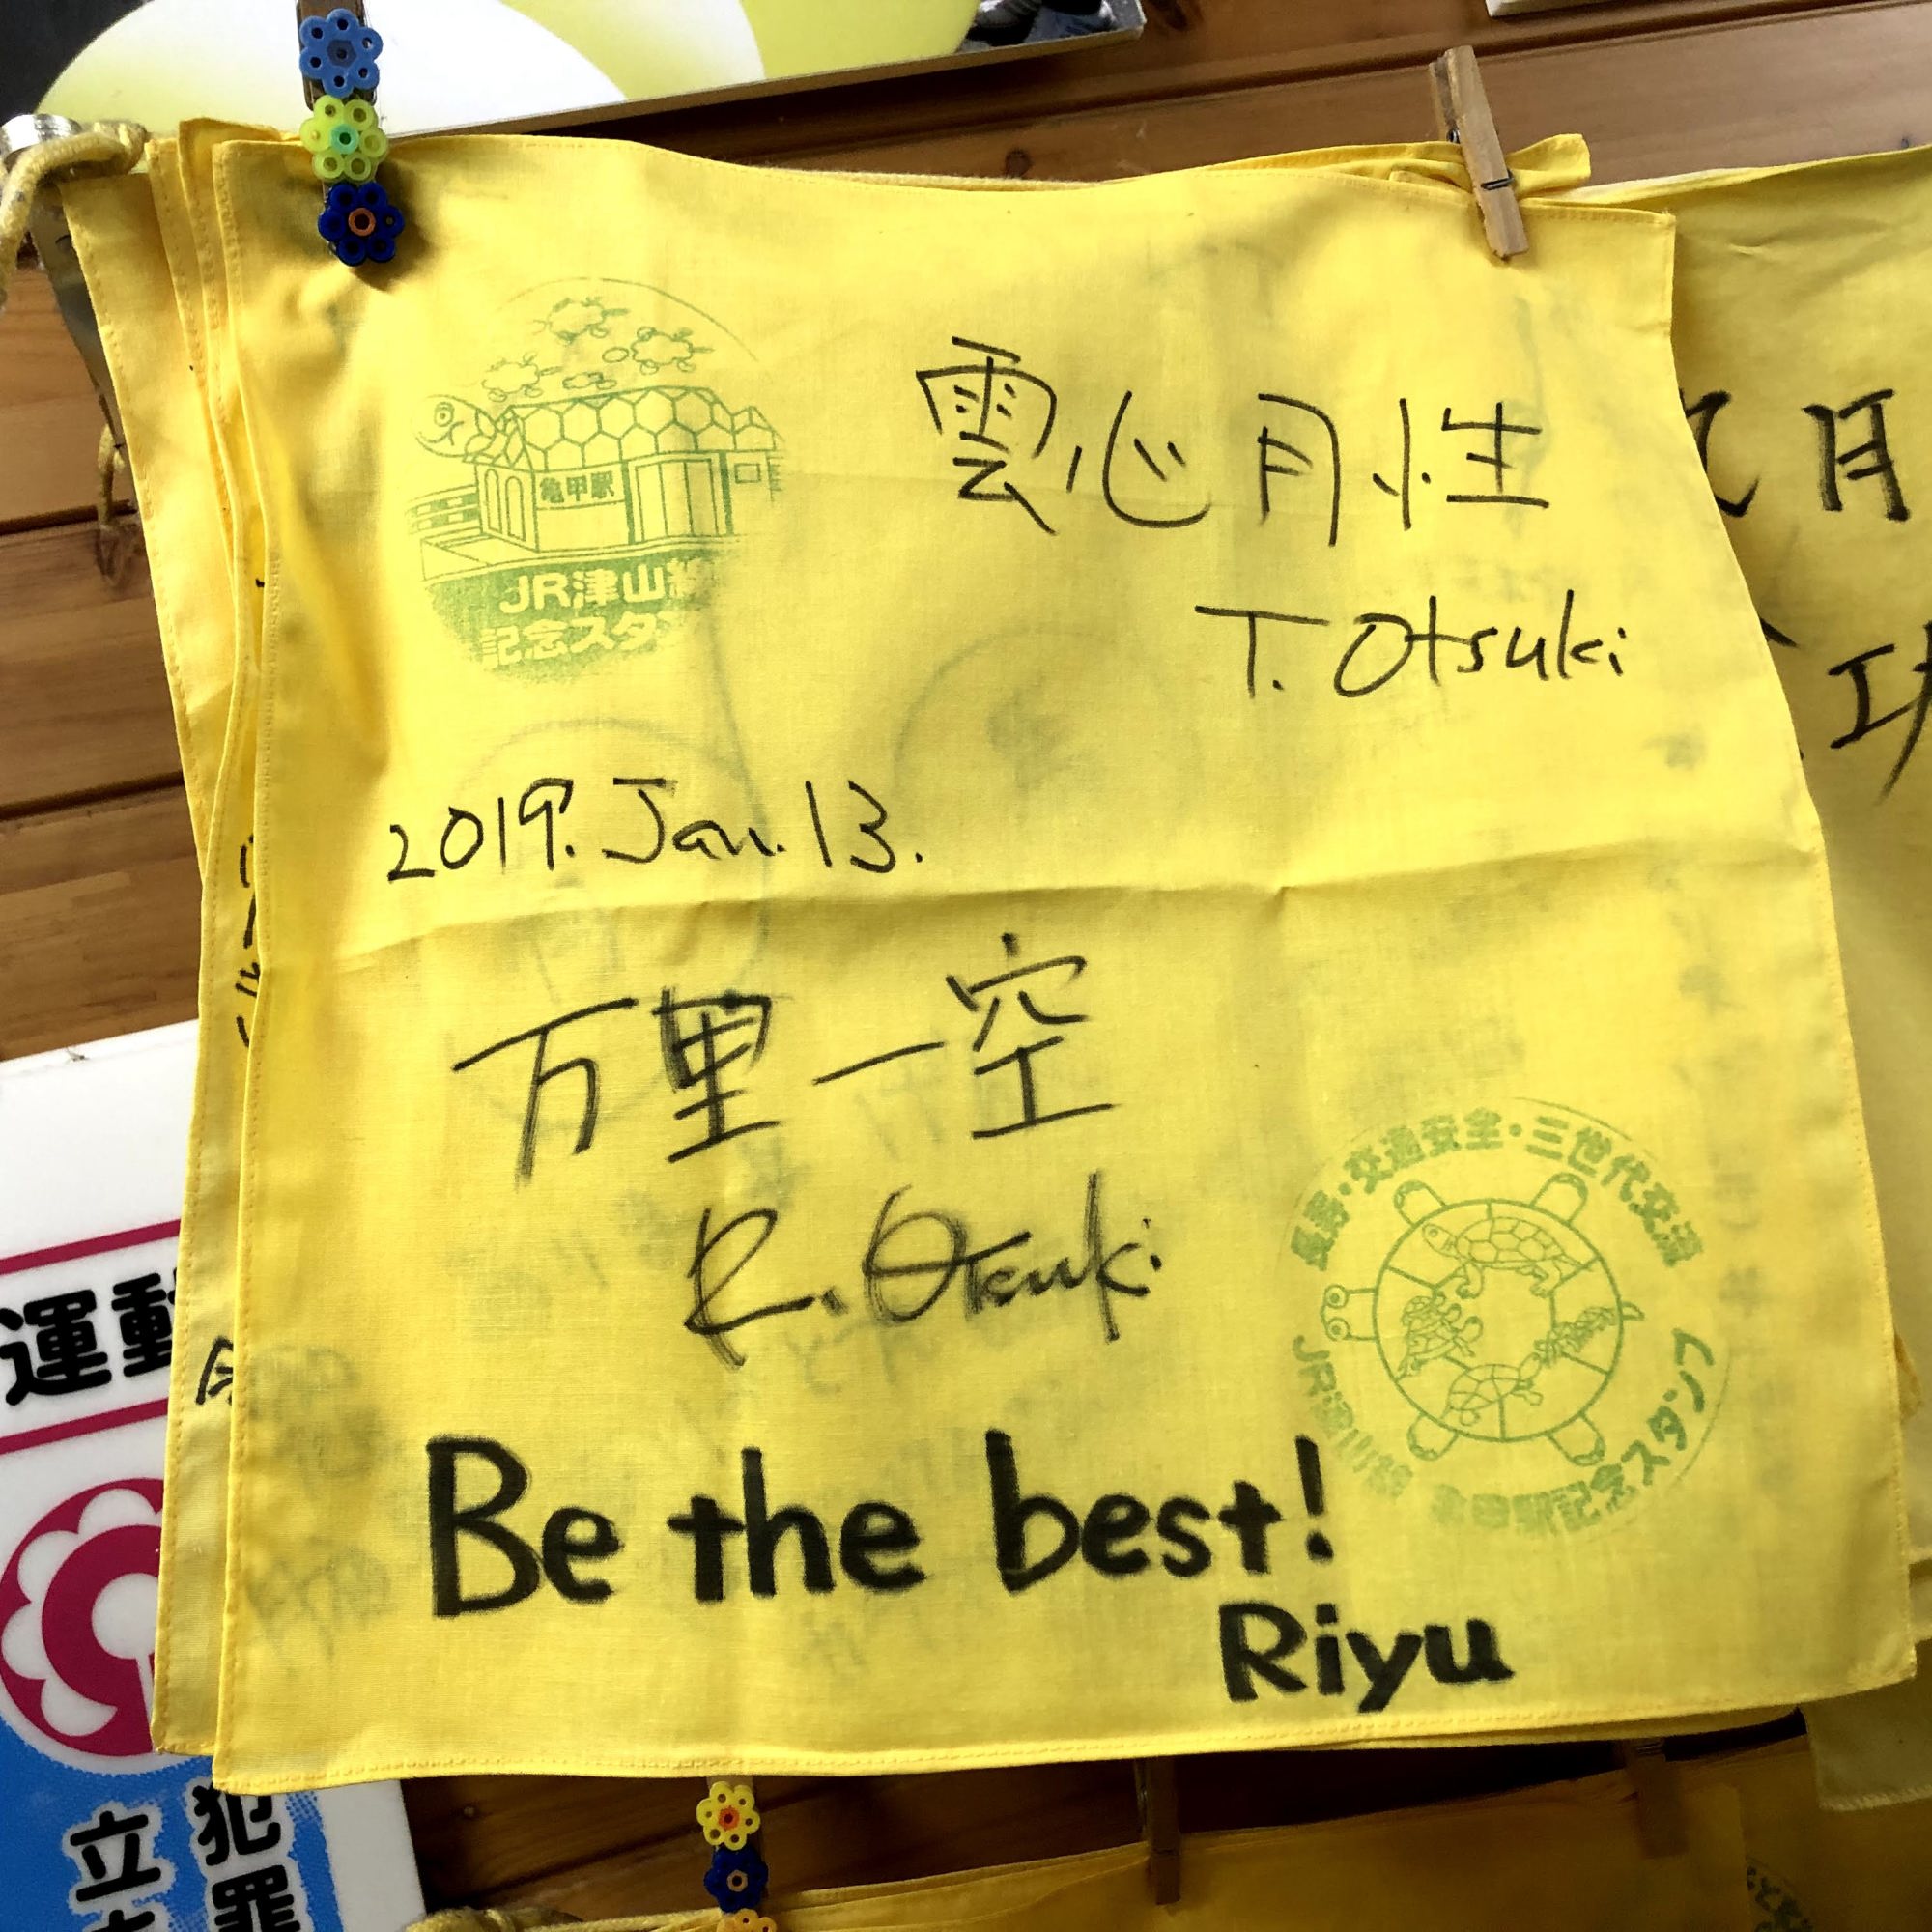 亀甲駅
JR津山線
記念スタ
雲心月性
T. Otsuki
月
功
2019. Jan. 13.
万里一空
R. Otsuki
長寿・交通安全・三世代交流
JR津山線 亀甲駅記念スタンプ
Be the best!
Riyu
運動
今
立
犯罪